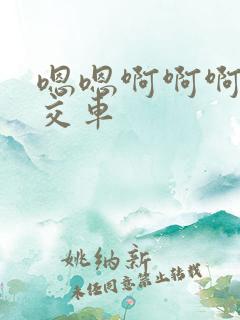 嗯嗯啊啊啊
交车
姚纳新
未经同意禁止转载